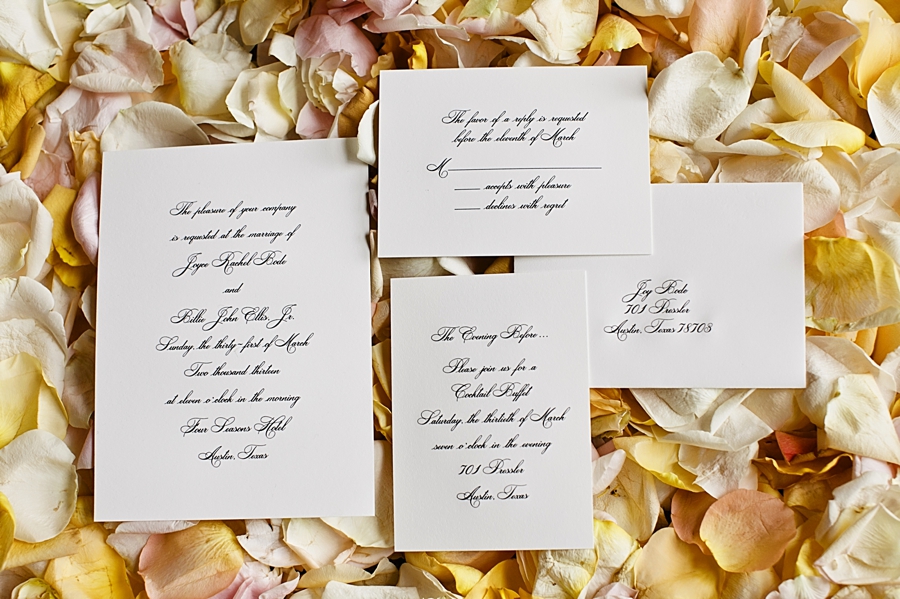 The pleasure of your company
is requested at the marriage of
Joyce Rachel Bode
and
Billie John Ellis, Jr.
Sunday, the thirty-first of March
Two thousand thirteen
at eleven o'clock in the morning
Four Seasons Hotel
Austin, Texas
The favor of a reply is requested
before the eleventh of March
M
accepts with pleasure
declines with regret
The Evening Before...
Please join us for a
Cocktail Buffet
Saturday, the thirtieth of March
seven o'clock in the evening
701 Pressler
Austin, Texas
Joy Bode
701 Pressler
Austin, Texas 78703